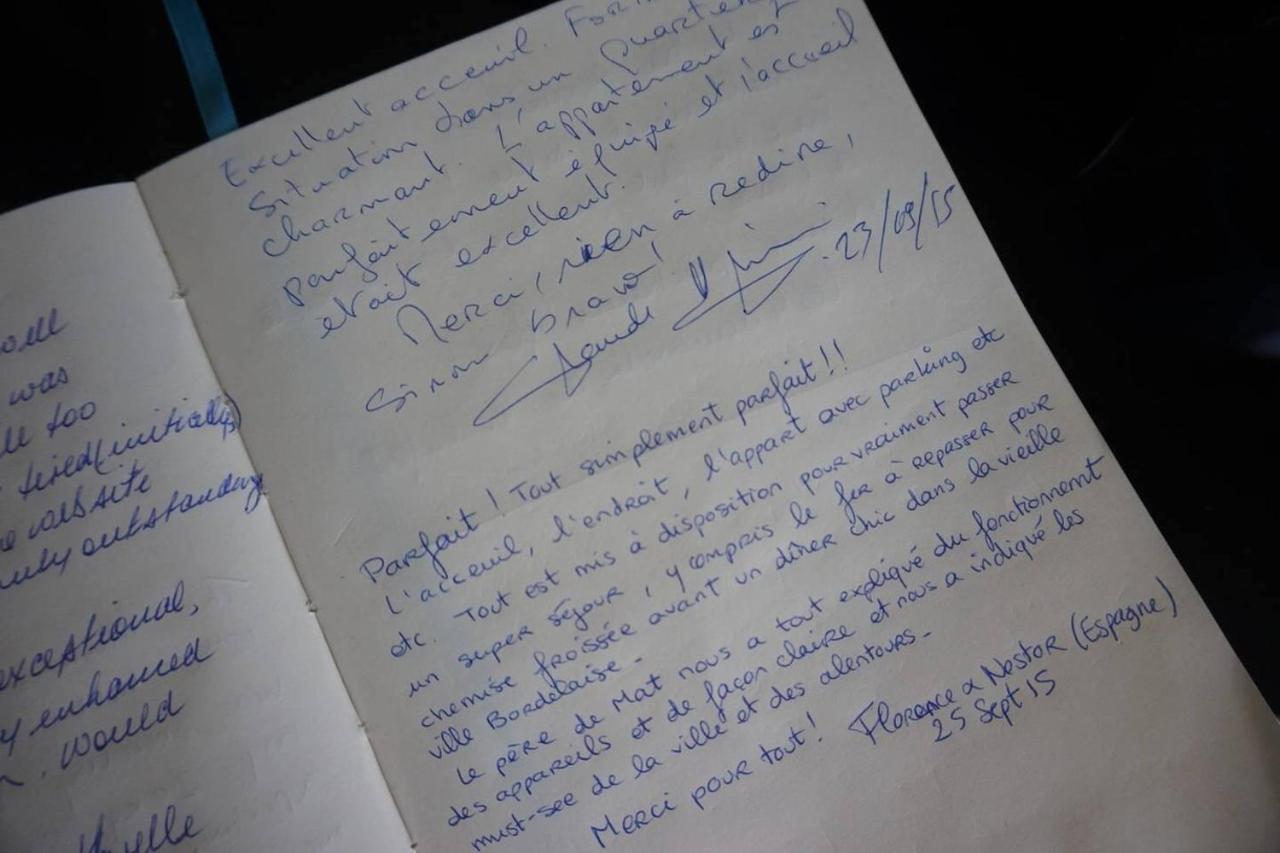 oell
was
too
tired (initially)
website
outstanding
exceptional,
y enhanced
would
Excellent acceuil.
Situation dans un quartier
charmant. L'appartement est
parfaitement équipé et l'accueil
etait excellent.
Merci, rien à redire,
Sinon bravo!
23/09/15
Parfait! Tout simplement parfait!!
L'acceuil, l'endroit, l'appart avec parking etc
etc. Tout est mis à disposition pour vraiment passer
un super séjour, y compris le fer à repasser pour
chemise froissée avant un dîner chic dans la vieille
ville Bordelaise.
Le père de Mat nous a tout expliqué du fonctionnement
des appareils et de façon claire et nous a indiqué les
must-see de la ville et des alentours.
Merci pour tout! Florence & Nestor (Espagne)
25 Sept 15